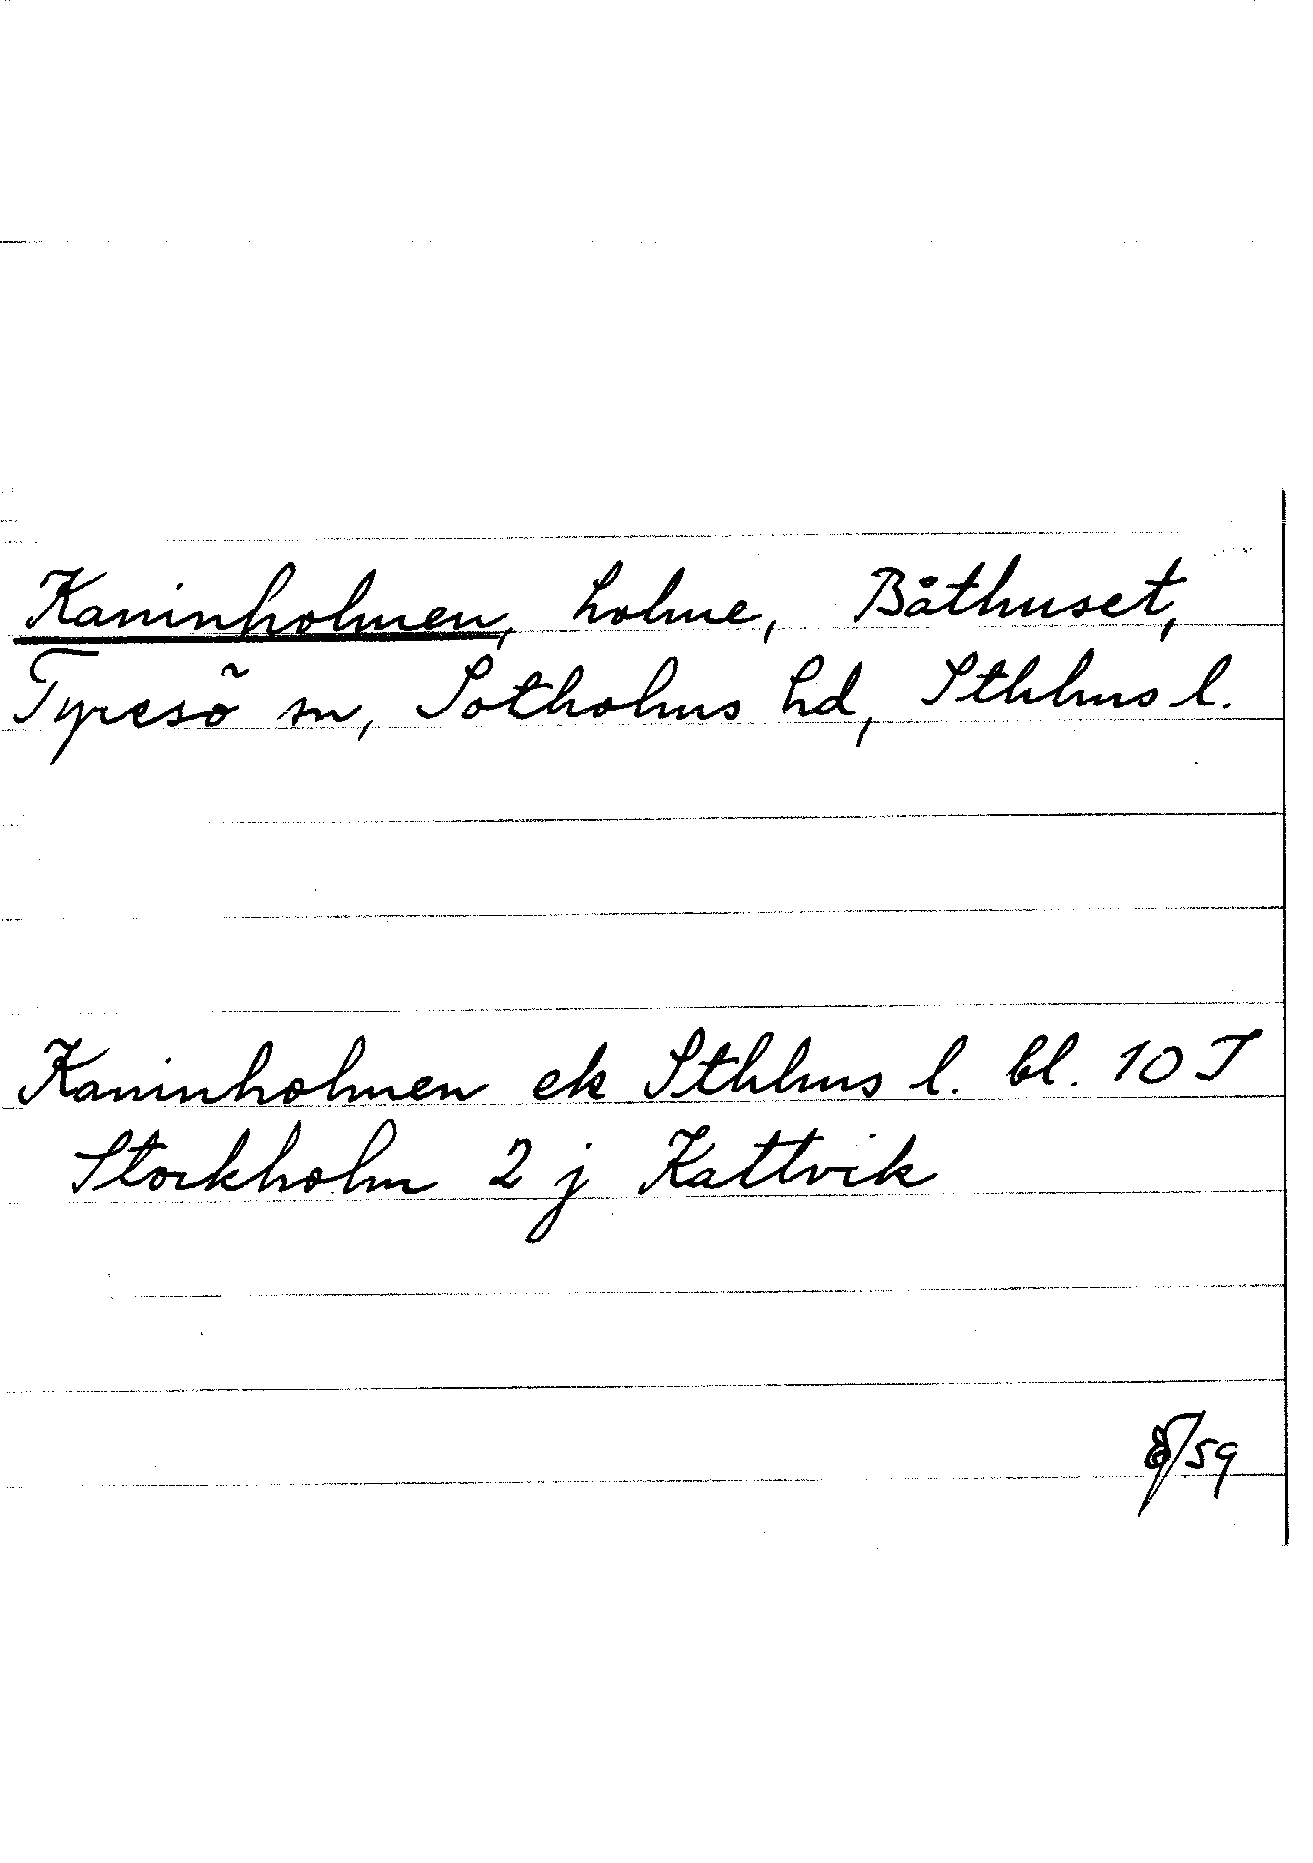 Kaninholmen, holme, Båthuset,
Tyresö sn, Sotholms hd, Sthlms l.
Kaninholmen ek Sthlms l. bl. 10 I
Stockholm 2 j Kattvik
/59